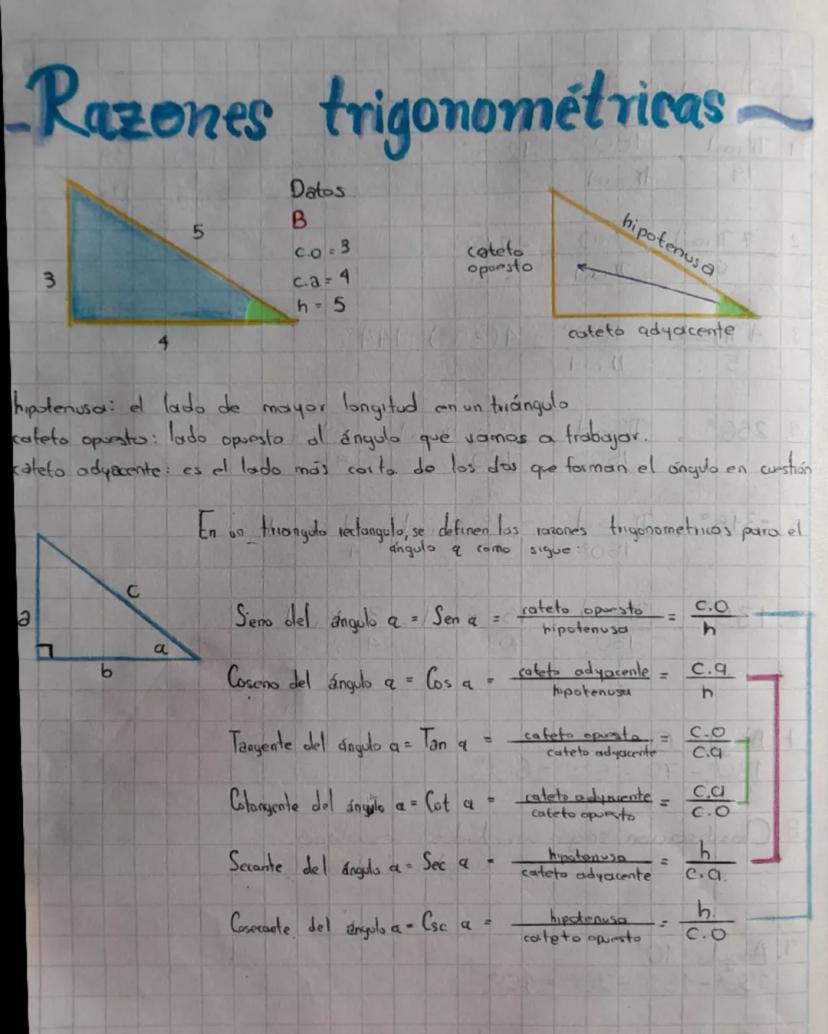 Razones trigonométricas
5
3
4
Datos
B
c.o = 3
c.a = 4
h = 5
cateto
opuesto
hipotenusa
cateto adyacente
hipotenusa: el lado de mayor longitud en un triángulo
cateto opuesto: lado opuesto al ángulo que vamos a trabajar.
cateto adyacente: es el lado más corto de los dos que forman el ángulo en cuestión
En un triangulo rectangulo, se definen las razones trigonometricas para el
ángulo a como sigue:
a
c
b
a
Sieno del ángulo a = Sen a = cateto opuesto / hipotenusa = c.o / h
Coseno del ángulo a = Cos a = cateto adyacente / hipotenusa = c.a / h
Tangente del ángulo a = Tan a = cateto opuesto / cateto adyacente = c.o / c.a
Cotangente del ángulo a = Cot a = cateto adyacente / cateto opuesto = c.a / c.o
Secante del ángulo a = Sec a = hipotenusa / cateto adyacente = h / c.a.
Cosecante del ángulo a = Csc a = hipotenusa / cateto opuesto = h / c.o